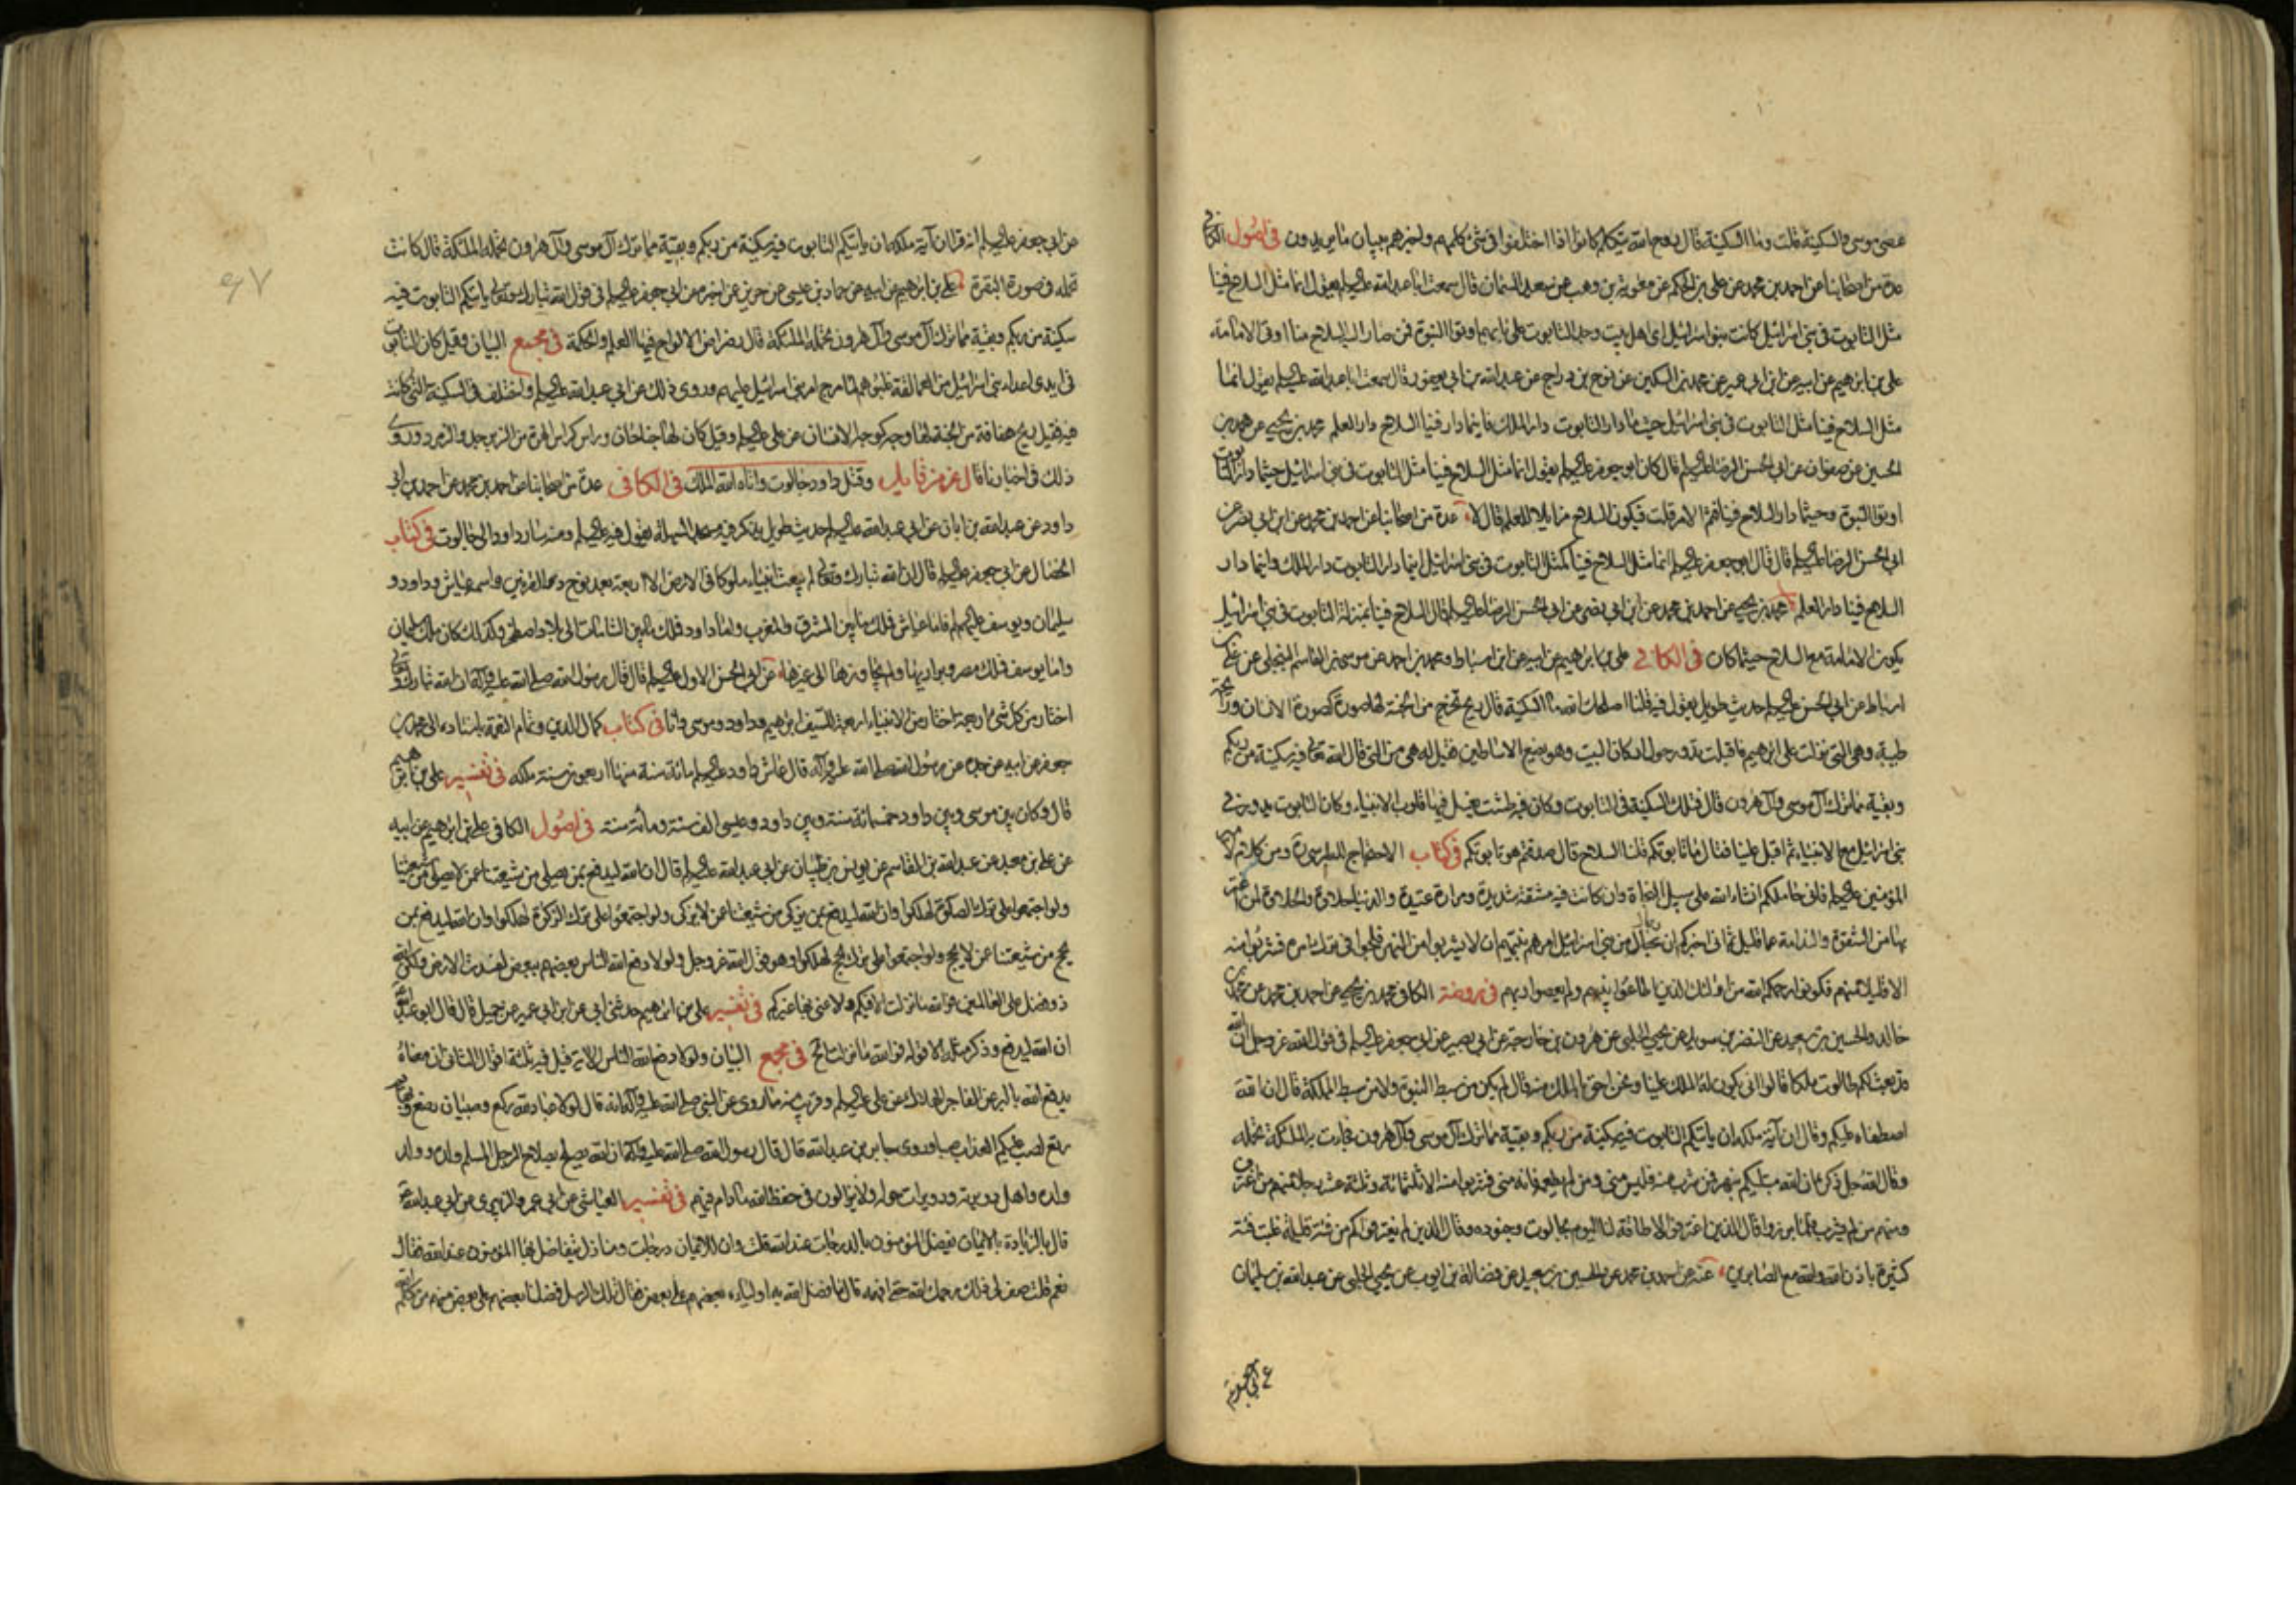 عصى موسى والسكينة قلت وما السكينة قال روح الله يتكلم كانوا اذا اختلفوا في شئ كلمهم واخبرهم ببيان ما يريدون في اصول الكافي
عدة من اصحابنا عن احمد بن محمد عن علي بن الحكم عن معوية بن وهب عن سعيد السمان قال سمعت ابا عبد الله عليه السلم يقول انما مثل السلاح فينا
مثل التابوت في بني اسرائيل كانت بنو اسرائيل اي اهل بيت وجد التابوت على بابهم اوتوا النبوة فمن صار اليه السلاح منا اوتى الامامة
علي بن ابرهيم عن ابيه عن ابن ابي عمير عن محمد بن السكين عن نوح بن دراج عن عبد الله بن ابي يعفور قال سمعت ابا عبد الله عليه السلم يقول انما
مثل السلاح فينا مثل التابوت في بني اسرائيل حيث ما دار التابوت دار الملك فاينما دار فينا السلاح دار العلم محمد بن يحيى عن محمد بن
الحسين عن صفوان عن ابي الحسن الرضا عليه السلم قال كان ابو جعفر عليه السلم يقول انما مثل السلاح فينا مثل التابوت في بني اسرائيل حيثما دار التابوت
اوتوا النبوة وحيثما دار السلاح فينا فثم الامر قلت فيكون السلاح مزايلا للعلم قال لا عدة من اصحابنا عن احمد بن محمد عن ابن ابي نصر عن
ابي الحسن الرضا عليه السلم قال قال ابو جعفر عليه السلم انما مثل السلاح فينا كمثل التابوت في بني اسرائيل اينما دار التابوت دار الملك واينما دار
السلاح فينا دار العلم محمد بن يحيى عن احمد بن محمد عن ابن ابي نصر عن ابي الحسن الرضا عليه السلم قال السلاح فينا بمنزلة التابوت في بني اسرائيل
يكون الامامة مع السلاح حيثما كان في الكافي علي بن ابرهيم عن ابيه عن ابن اسباط ومحمد بن احمد عن موسى بن القاسم البجلي عن علي بن
اسباط عن ابي الحسن عليه السلم حديث طويل يقول فيه قلنا اصلحك الله ما السكينة قال ريح تخرج من الجنة لها صورة كصورة الانسان ورائحة
طيبة وهي التي نزلت على ابرهيم فاقبلت تدور حول اركان البيت وهو يضع الاساطين فقيل له هي من التي قال الله تعالى فيه سكينة من ربكم
وبقية مما ترك آل موسى وآل هرون قال تلك السكينة في التابوت وكان فيه طشت يغسل فيها قلوب الانبياء وكان التابوت يدور في
بني اسرائيل مع الانبياء ثم اقبل علينا فقال ما تابوتكم قلنا السلاح قال صدقتم هو تابوتكم في كتاب الاحتجاج للطبرسي ره ومن كلام له لامير
المؤمنين عليه السلم فاني حاملكم انشاء الله على سبيل النجاة وان كانت فيه مشقة شديدة ومرارة عتيدة والدنيا حلاوة والحلاوة لمن اغتر
بها من الشقوة والندامة عما قليل ثم اني اخبركم ان جيلا من بني اسرائيل امرهم نبيهم ان لا يشربوا من النهر فلجوا في ترك امره فشربوا منه
الا قليلا منهم فكونوا رحمكم الله من اولئك الذين اطاعوا نبيهم ولم يعصوا ربهم في روضة الكافي محمد بن يحيى عن احمد بن محمد عن محمد بن
خالد والحسين بن سعيد عن النضر بن سويد عن يحيى الحلبي عن هرون بن خارجة عن ابي بصير عن ابي جعفر عليه السلم في قول الله عز وجل ان الله
قد بعث لكم طالوت ملكا قالوا انى يكون له الملك علينا ونحن احق بالملك منه قال لم يكن من سبط النبوة ولا من سبط المملكة قال ان الله
اصطفاه عليكم وقال ان آية ملكه ان ياتيكم التابوت فيه سكينة من ربكم وبقية مما ترك آل موسى وآل هرون فجاءت به الملئكة تحمله
وقال الله جل ذكره ان الله مبتليكم بنهر فمن شرب منه فليس مني ومن لم يطعمه فانه مني فشربوا منه الا ثلثمائة وثلثة عشر رجلا منهم من اغترف
ومنهم من لم يشرب فلما برزوا قال الذين اغترفوا لا طاقة لنا اليوم بجالوت وجنوده وقال الذين لم يغترفوا كم من فئة قليلة غلبت فئة
كثيرة باذن الله والله مع الصابرين عنه عن احمد بن محمد عن الحسين بن سعيد عن فضالة بن ايوب عن يحيى الحلبي عن عبد الله بن سليمان
عن ابي جعفر
عن ابي جعفر عليه السلم انه قرا ان آية ملكه ان ياتيكم التابوت فيه سكينة من ربكم وبقية مما ترك آل موسى وآل هرون تحمله الملئكة قال كانت
تحمله في صورة البقرة علي بن ابرهيم عن ابيه عن حماد بن عيسى عن حريز عن اخبره عن ابي جعفر عليه السلم في قول الله تبارك وتعالى ياتيكم التابوت فيه
سكينة من ربكم وبقية مما ترك آل موسى وآل هرون تحمله الملئكة قال رضراض الالواح فيها العلم والحكمة في مجمع البيان وقيل كان التابوت
في ايدي اعداء بني اسرائيل من العمالقة غلبوهم لما مرج امر بني اسرائيل عليهم وروى ذلك عن ابي عبد الله عليه السلم واختلف في السكينة التي كانت
فيه فقيل ريح هفافة من الجنة لها وجه كوجه الانسان عن علي عليه السلم وقيل كان لها جناحان وراس كراس الهرة من الزبرجد والزمرد وروي
ذلك في اخبارنا قال عز من قايل وقتل داود جالوت واتاه الله الملك في الكافي عدة من اصحابنا عن احمد بن محمد عن احمد بن ابي
داود عن عبد الله بن ابان عن ابي عبد الله عليه السلم حديث طويل يذكر فيه مسجد السهلة يقول فيه عليه السلم ومنه سار داود الى جالوت في كتاب
الخصال عن ابي جعفر عليه السلم قال ان الله تبارك وتعالى لم يبعث انبياء ملوكا في الارض الا اربعة بعد نوح ذو القرنين واسمه عياش وداود و
سليمان ويوسف عليهم السلم فاما عياش فملك ما بين المشرق والمغرب واما داود فملك ما بين الشامات الى بلاد اصطخر وكذلك كان ملك سليمان
واما يوسف فملك مصر وبراريها ولم يجاوزها الى غيرها عن ابي الحسن الاول عليه السلم قال قال رسول الله صلى الله عليه وآله ان الله تبارك وتعالى
اختار من كل شئ اربعة اختار من الانبياء اربعة للسيف ابرهيم وداود وموسى وانا في كتاب كمال الدين وتمام النعمة باسناده الى محمد بن
جعفر عن ابيه عن جده عن رسول الله صلى الله عليه وآله قال عاش داود عليه السلم مائة سنة منها اربعون سنة ملكه في تفسير علي بن ابرهيم
قال وكان بين موسى وبين داود خمسمائة سنة وبين داود وعيسى الف سنة ومائة سنة في اصول الكافي علي بن ابرهيم عن ابيه
عن علي بن معبد عن عبد الله بن القاسم عن يونس بن ظبيان عن ابي عبد الله عليه السلم قال ان الله ليدفع بمن يصلي من شيعتنا عمن لا يصلي من شيعتنا
ولو اجتمعوا على ترك الصلوة لهلكوا وان الله ليدفع بمن يزكي من شيعتنا عمن لا يزكي ولو اجتمعوا على ترك الزكوة لهلكوا وان الله ليدفع بمن
يحج من شيعتنا عمن لا يحج ولو اجتمعوا على ترك الحج لهلكوا وهو قول الله عز وجل ولولا دفع الله الناس بعضهم ببعض لفسدت الارض ولكن الله
ذو فضل على العالمين فوالله ما نزلت الا فيكم ولا عنى بها غيركم في تفسير علي بن ابرهيم حدثني ابي عن ابن ابي عمير عن جميل قال قال ابو عبد الله
ان الله ليدفع وذكر مثله الا قوله فوالله ما نزلت الخ في مجمع البيان ولولا دفع الله الناس الآية قيل فيه ثلثة اقوال الثاني ان معناه
يدفع الله بالبر عن الفاجر الهلاك عن علي عليه السلم وقريب منه ما روى عن النبي صلى الله عليه وآله انه قال لولا عباد لله ركع وصبيان رضع وبهائم
رتع لصب عليكم العذاب صبا وروى جابر بن عبد الله قال قال رسول الله صلى الله عليه وآله ان الله يصلح بصلاح الرجل المسلم ولده وولد
ولده واهل دويرته ودويرات حوله ولا يزالون في حفظ الله ما دام فيهم في تفسير العياشي عن ابي عمرو الزبيري عن ابي عبد الله
قال بالزيادة بالايمان يفضل المؤمنون بالدرجات عند الله قلت وان للايمان درجات ومنازل يتفاضل بها المؤمنون عند الله فقال
نعم قلت صف لي ذلك رحمك الله حتى افهمه قال ما فضل الله به اولياءه بعضهم على بعض فقال تلك الرسل فضلنا بعضهم على بعض منهم من كلم الله